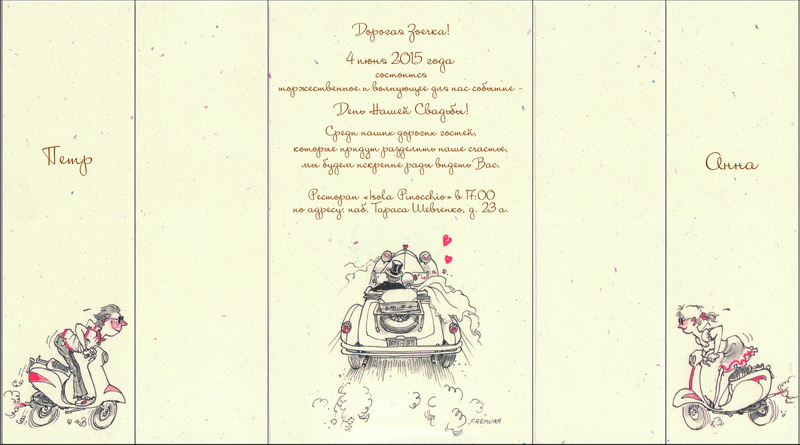 Дорогая Зоечка!
4 июня 2015 года
состоится
торжественное и волнующее для нас событие -
День Нашей Свадьбы!
Среди наших дорогих гостей,
которые придут разделить наше счастье,
мы будем искренне рады видеть Вас.
Ресторан «Isola Pinocchio» в 17:00
по адресу: наб. Тараса Шевченко, д. 23 а.
Петр
Анна
FREMURA